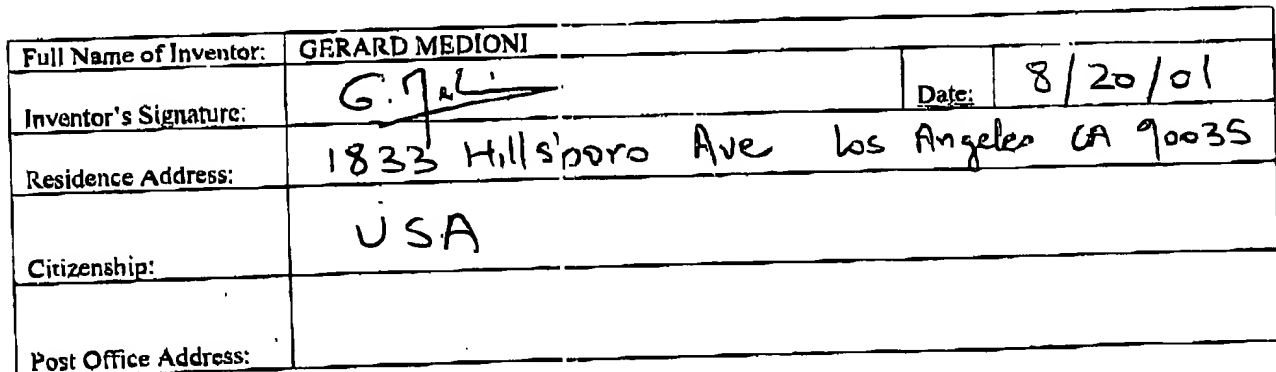 Full Name of Inventor: GERARD MEDIONI
Inventor's Signature: G. Date: 8/20/01
Residence Address: 1833 Hillsboro Ave Los Angeles CA 90035
Citizenship: USA
Post Office Address: